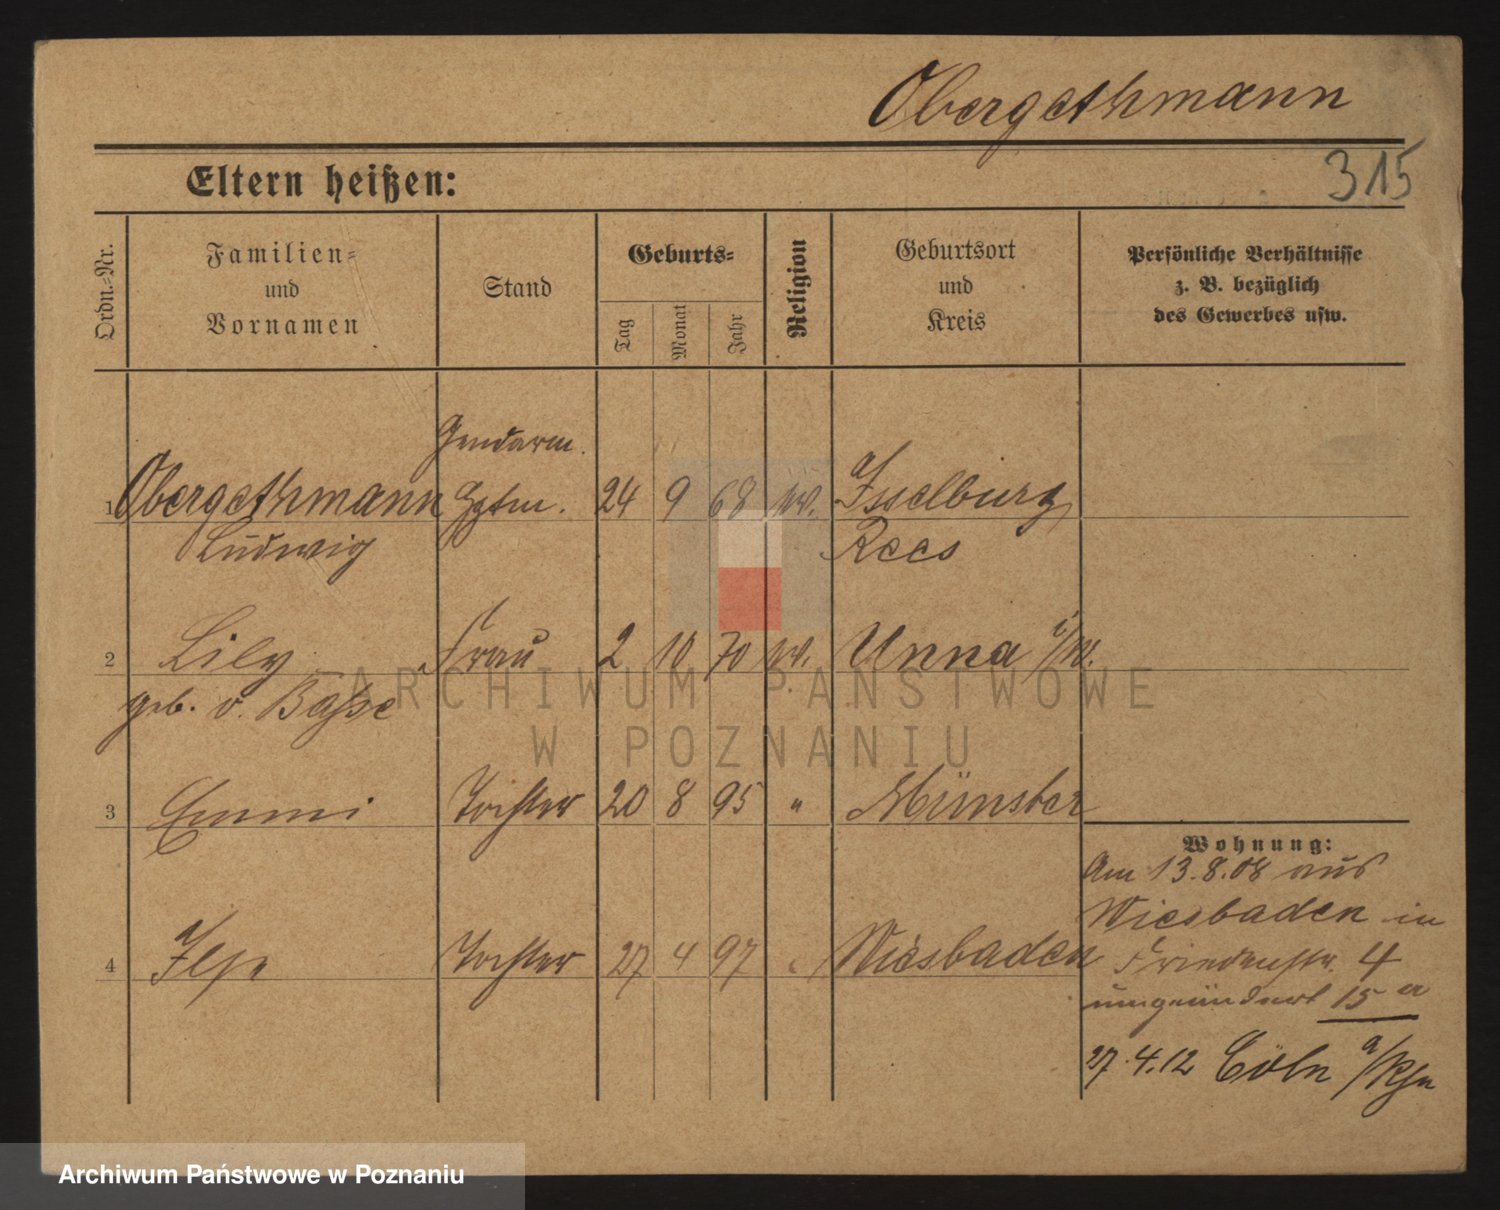 Obergethmann
315
Eltern heißen:
Ordn.-Nr.
Familien-
und
Vornamen
Stand
Geburts-
Tag
Monat
Jahr
Religion
Geburtsort
und
Kreis
Persönliche Verhältnisse
z. B. bezüglich
des Gewerbes usw.
Gendarm.
1 Obergethmann Hptm. 24 9 68 Isselburg
Ludwig Rees
2 Lily Frau 2 10 70 Unna i/W.
geb. v. Basse
3 Emmi Tochter 20 8 95 " Münster
4 Ilse Tochter 27 4 97 " Wiesbaden
Wohnung:
Am 13.8.08 aus
Wiesbaden in
Friedenstr. 4
umgeändert 15 a
27.4.12 Cöln a/Rhn
ARCHIWUM PAŃSTWOWE
W POZNANIU
Archiwum Państwowe w Poznaniu